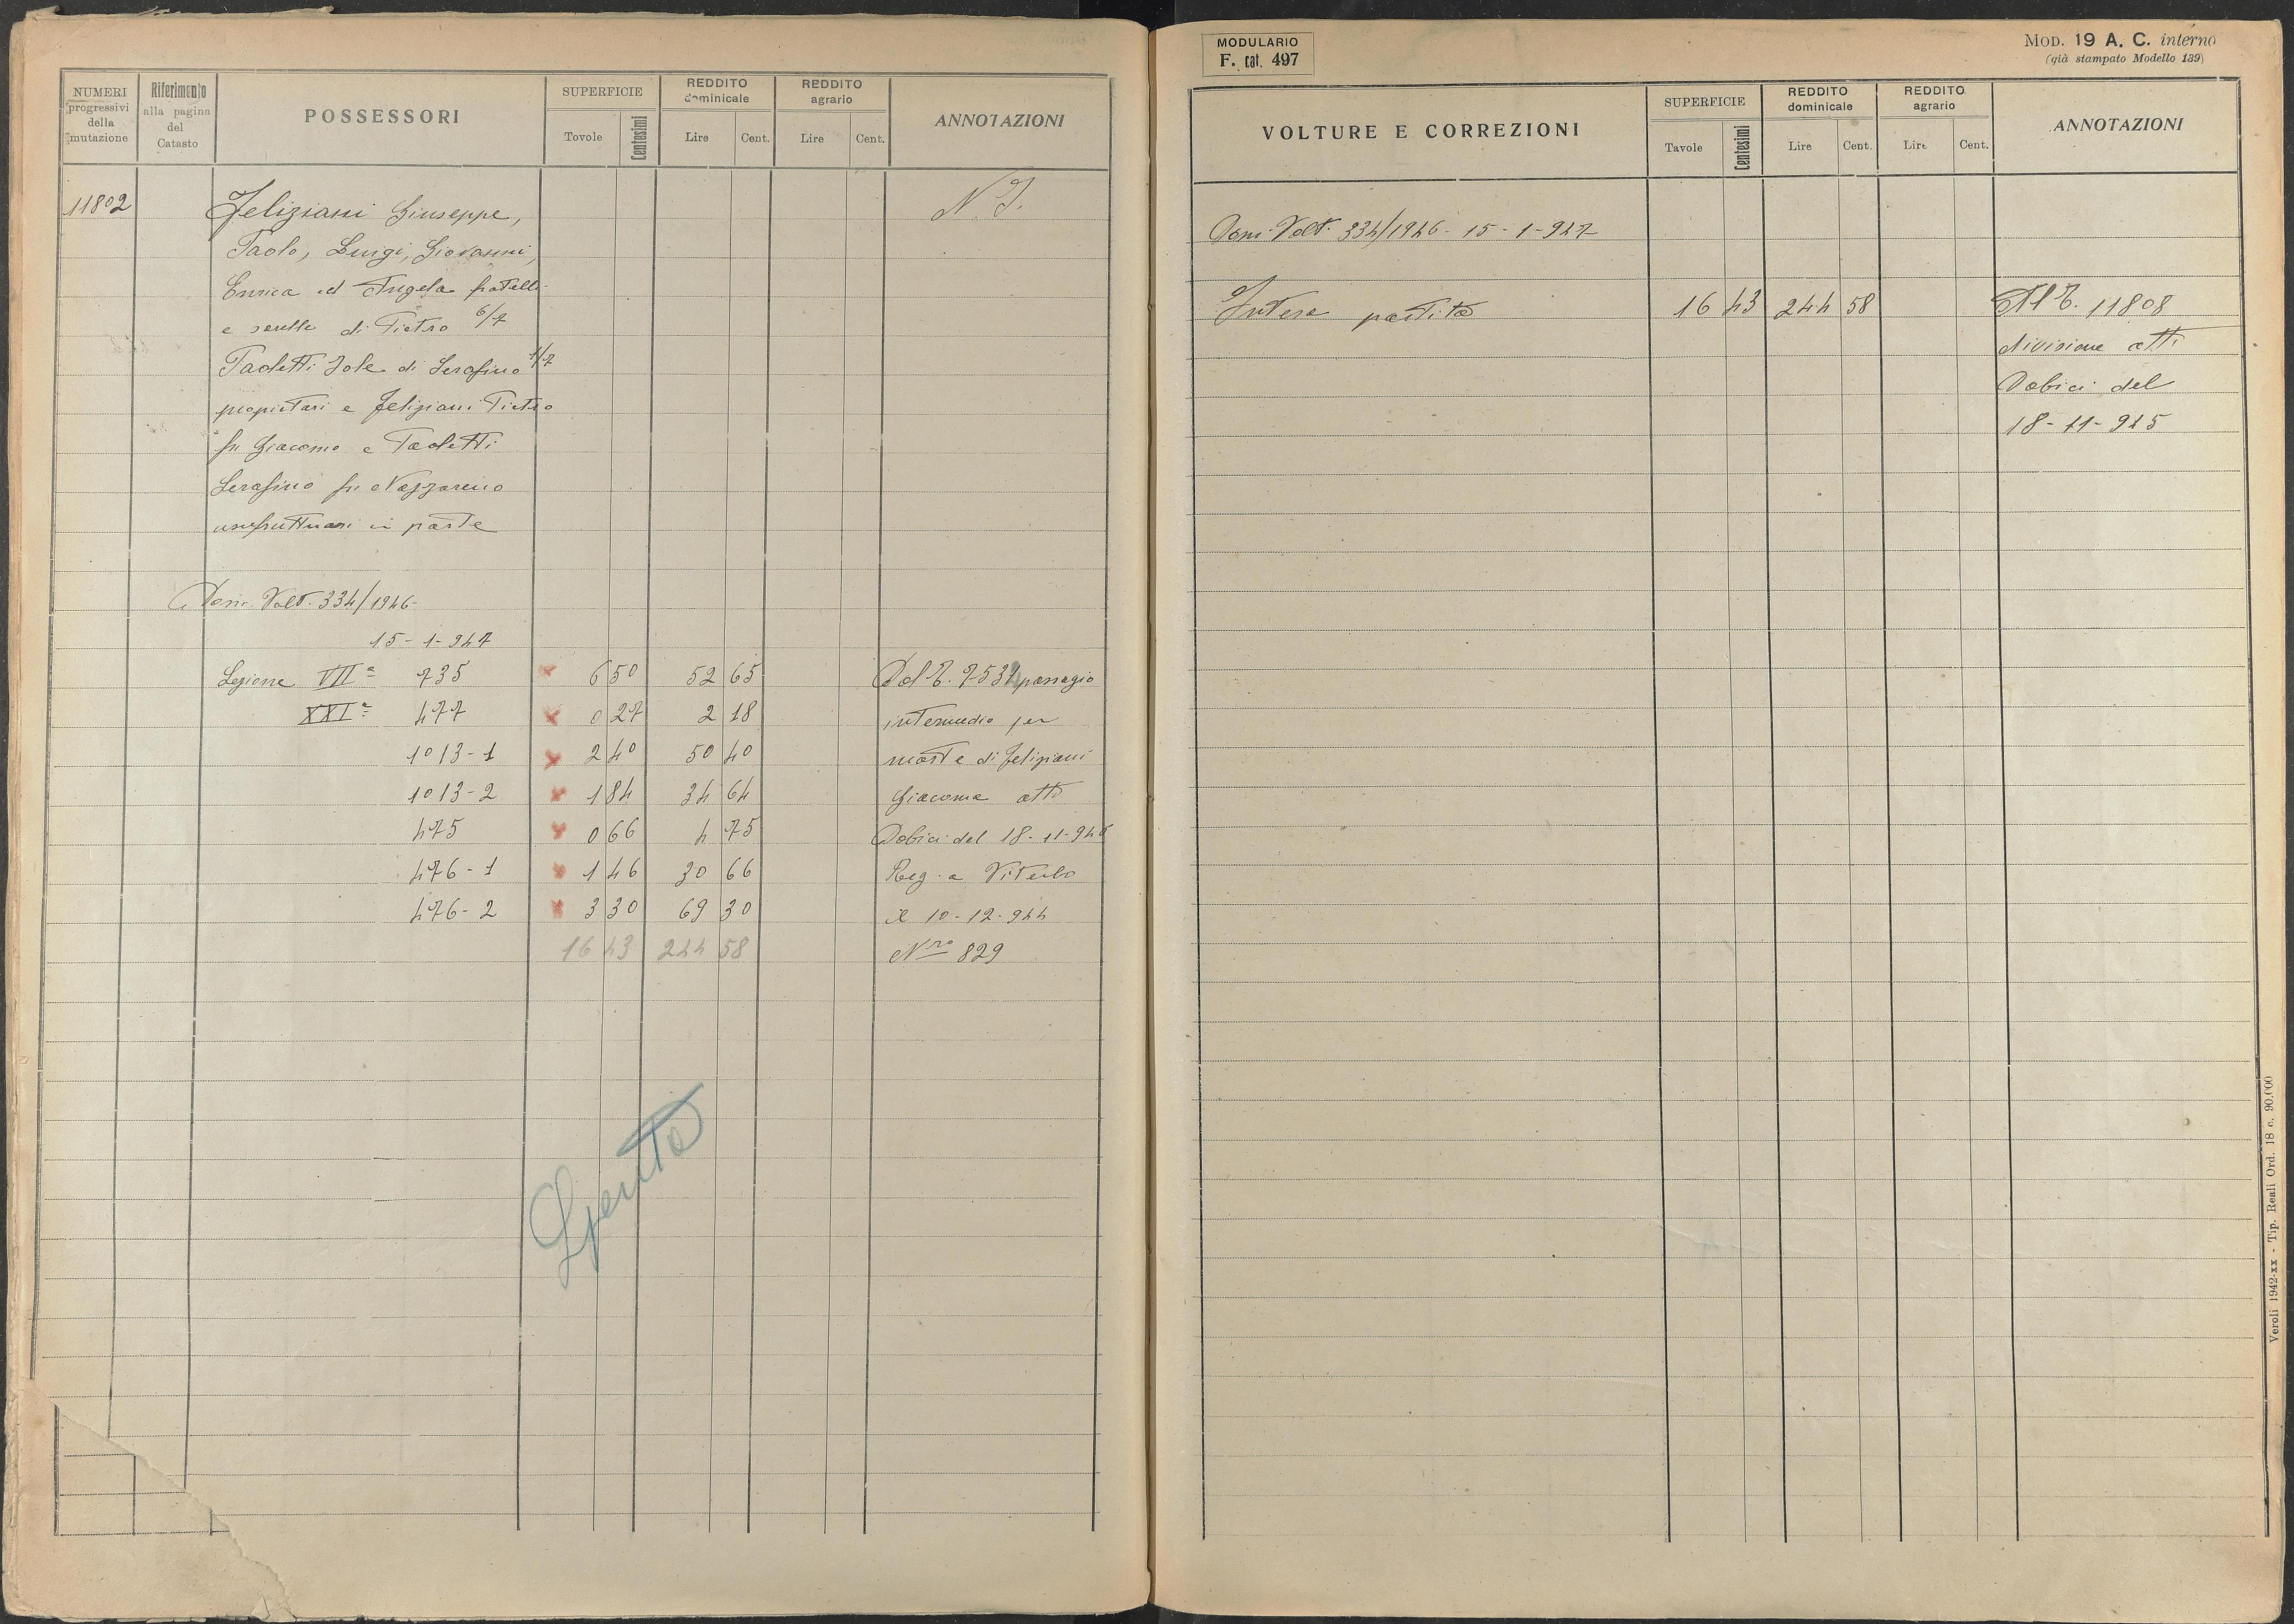 NUMERI progressivi della mutazione
Riferimento alla pagina del Catasto
POSSESSORI
SUPERFICIE
Tavole Centesimi
REDDITO dominicale
Lire Cent.
REDDITO agrario
Lire Cent.
ANNOTAZIONI
11802 Feliziani Giuseppe, N. I.
Paolo, Luigi, Giovanni,
Enrica ed Angela fratelli
e sorelle di Pietro 6/7
Paoletti Iole di Serafino 1/7
proprietari e Feliziani Pietro
fu Giacomo e Paoletti
Serafino fu Nazzareno
usufruttuari in parte
Dom. Volt. 334/1946-
15-1-947
Legione VIIª 735 6 50 52 65 Dal P. 7531 passagio
XXIª 477 0 27 2 18 intermedio per
1013-1 2 40 50 40 morte di Feliziani
1013-2 1 84 34 64 Giacomo atto
475 0 66 4 75 Dobici del 18-11-94
476-1 1 46 30 66 Reg. a Viterbo
476-2 3 30 69 30 il 10-12-944
16 43 244 58 Nro 829
Spento
MODULARIO
F. cat. 497
MOD. 19 A. C. interno
(già stampato Modello 139)
VOLTURE E CORREZIONI
SUPERFICIE
Tavole Centesimi
REDDITO dominicale
Lire Cent.
REDDITO agrario
Lire Cent.
ANNOTAZIONI
Dom. Volt. 334/1946- 15-1-947
Intera partita 16 43 244 58 Al P. 11808
divisione atti
Dobici del
18-11-945
Veroli 1942-XX - Tip. Reali Ord. 18 c. 90.000